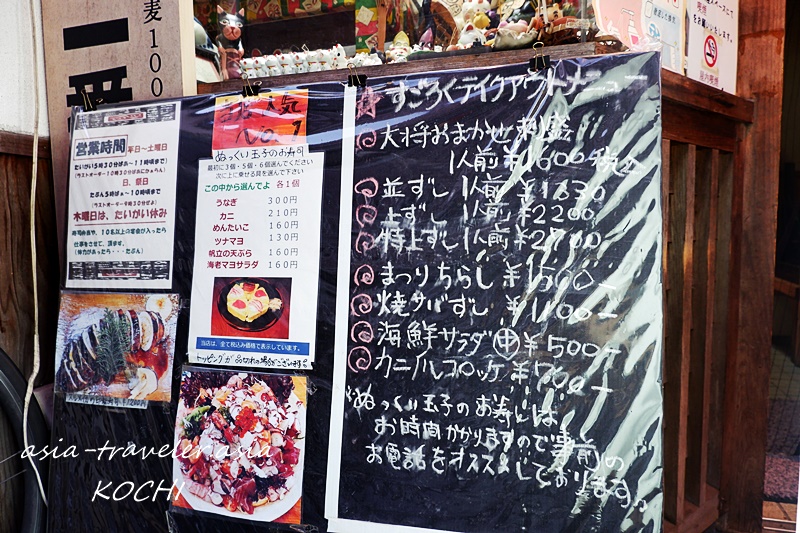 麦100
一番
営業時間 平日〜土曜日
たいがい5時30分ばぁ〜11時頃まで
日、祭日
たぶん5時ばぁ〜10時頃まで
木曜日は、たいがい休み
人気
No.1
ぬっくい玉子のお寿司
最初に3個・5個・6個選んでください
次に上に乗せる具を選んで下さい
この中から選んでよ 各1個
うなぎ 300円
カニ 210円
めんたいこ 160円
ツナマヨ 130円
帆立の天ぷら 160円
海老マヨサラダ 160円
当店は、全て税込み価格で表示しています
トッピングが品切れの場合がございます。
すごろくテイクアウトメニュー
大将おまかせ刺盛
1人前 ¥1600
並ずし 1人前 ¥1630
上ずし 1人前 ¥2200
特上ずし 1人前 ¥2700
まつりちらし ¥1500-
焼サバずし ¥1100-
海鮮サラダ 中 ¥500-
カニクリームコロッケ ¥700-
ぬっくい玉子のお寿しは
お時間かかりますので事前の
お電話をオススメしております。
asia-traveler.asia
KOCHI